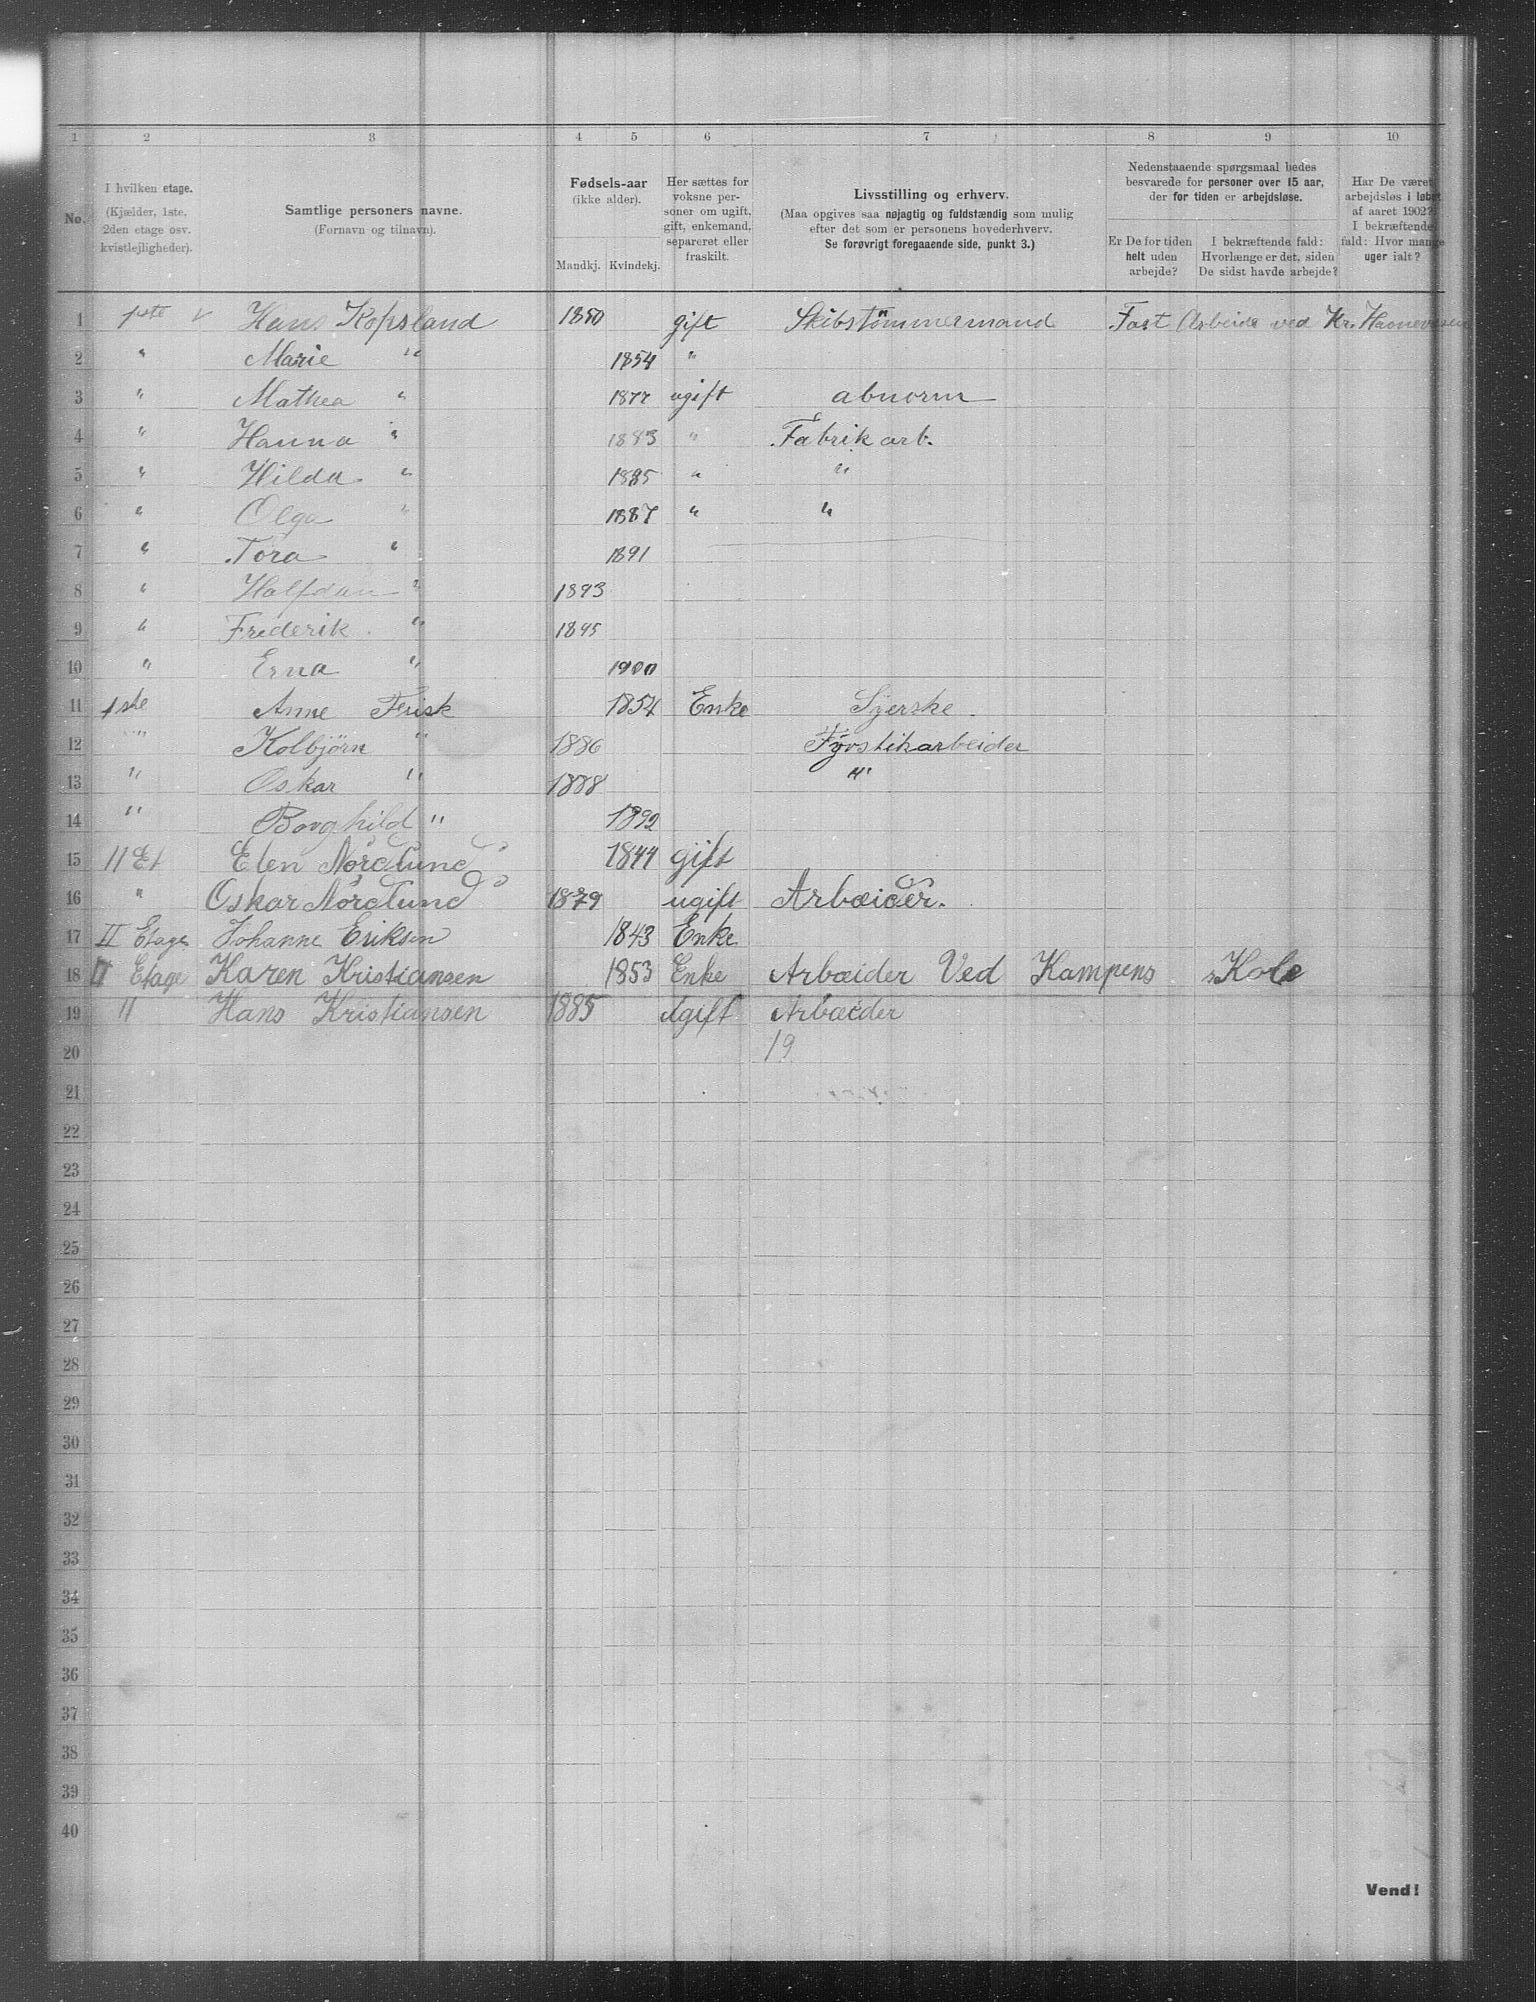 1 2 3 4 5 6 7 8 9 10
No.
I hvilken etage.
(Kjælder, 1ste,
2den etage osv.
kvistlejligheder).
Samtlige personers navne.
(Fornavn og tilnavn).
Fødsels-aar
(ikke alder).
Mandkj. Kvindekj.
Her sættes for
voksne per-
soner om ugift,
gift, enkemand,
separeret eller
fraskilt.
Livsstilling og erhverv.
(Maa opgives saa nøjagtig og fuldstændig som mulig
efter det som er personens hovederhverv.
Se forøvrigt foregaaende side, punkt 3.)
Nedenstaaende spørgsmaal bedes
besvarede for personer over 15 aar,
der for tiden er arbejdsløse.
Er De for tiden
helt uden
arbejde?
I bekræftende fald:
Hvorlænge er det, siden
De sidst havde arbejde?
Har De været
arbejdsløs i løbet
af aaret 1902?
I bekræftende
fald: Hvor mange
uger ialt?
1 1ste v Hans Kopsland 1850 gift Skibstömmermand Fast Arbeide ved Kr.
2 " Marie " 1854 "
3 " Mathea " 1877 ugift abnorm
4 " Hanna " 1883 " Fabrik arb.
5 " Hilda " 1885 " "
6 " Olga " 1887 " "
7 " Tora " 1891
8 " Halfdan " 1893
9 " Frederik " 1895
10 " Erna " 1900
11 1ste Anne Frisk 1854 Enke Syerske.
12 " Kolbjörn " 1886 Fyrstikarbeider
13 " Oskar " 1888 "
14 " Borghild " 1892
15 II Et Elen Nordlund 1844 gift
16 " Oskar Nordlund 1879 ugift Arbæider.
17 II Etage Johanne Eriksen 1843 Enke
18 II Etage Karen Kristiansen 1853 Enke Arbæider Ved Kampens Kole
19 " Hans Kristiansen 1885 Ugift Arbæider
20 19
21
22
23
24
25
26
27
28
29
30
31
32
33
34
35
36
37
38
39
40
Vend!